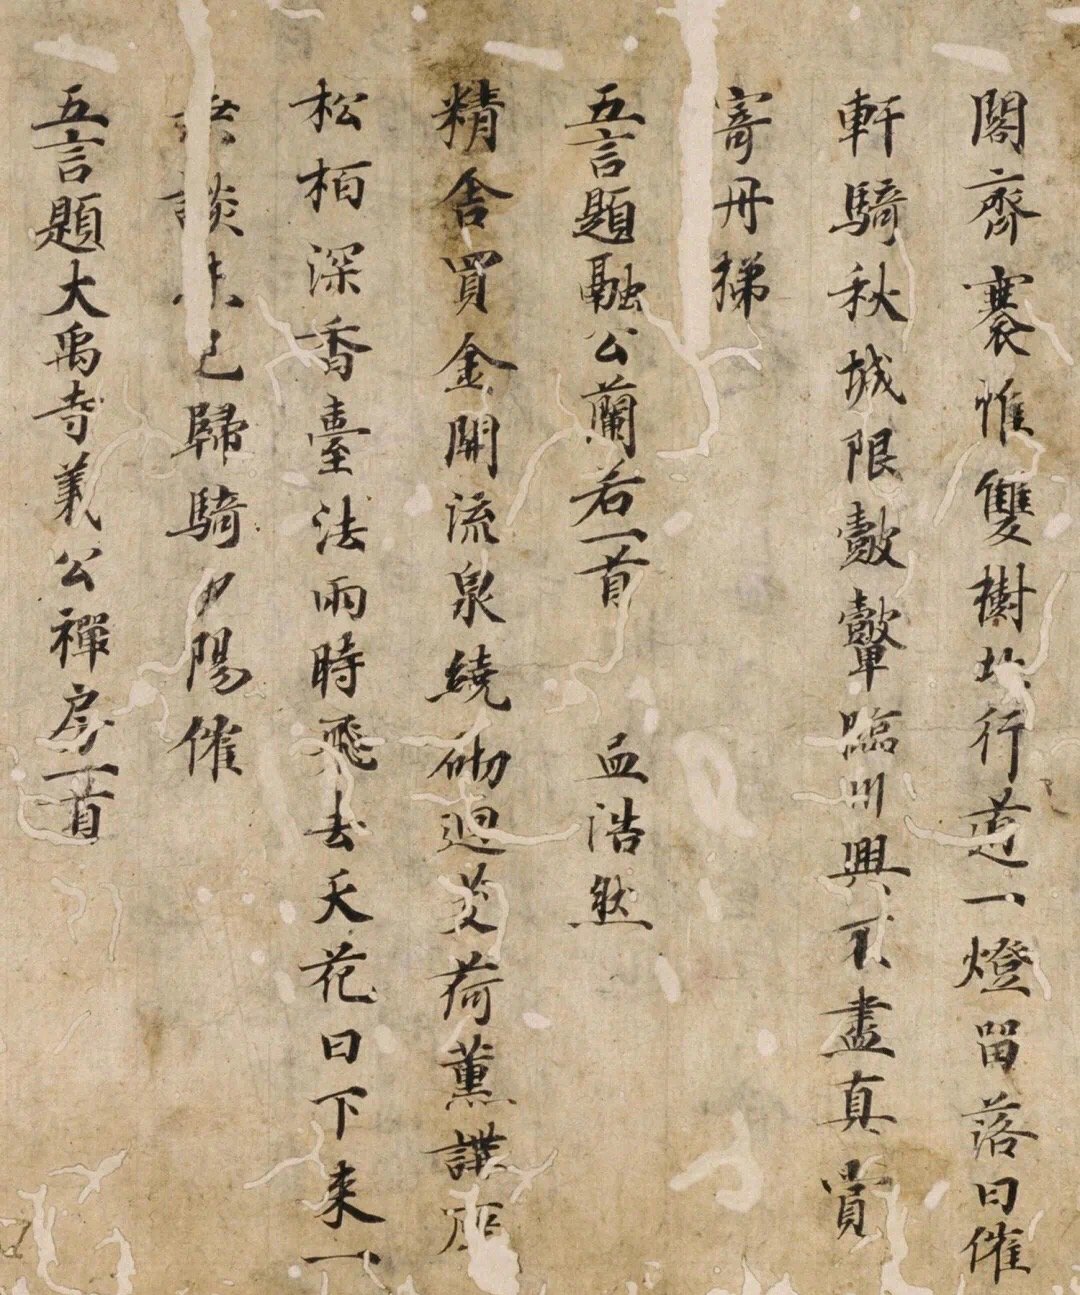 閣齊褰惟雙樹坎行道一燈留落日催
軒騎秋城限鼓鼙臨川興不盡真賞
寄丹梯
五言題融公蘭若一首 孟浩然
精舍買金開流泉繞砌迴芰荷薰講座
松栢深香臺法雨時飛去天花日下来一
談未已歸騎夕陽催
五言題大禹寺義公禪房一首